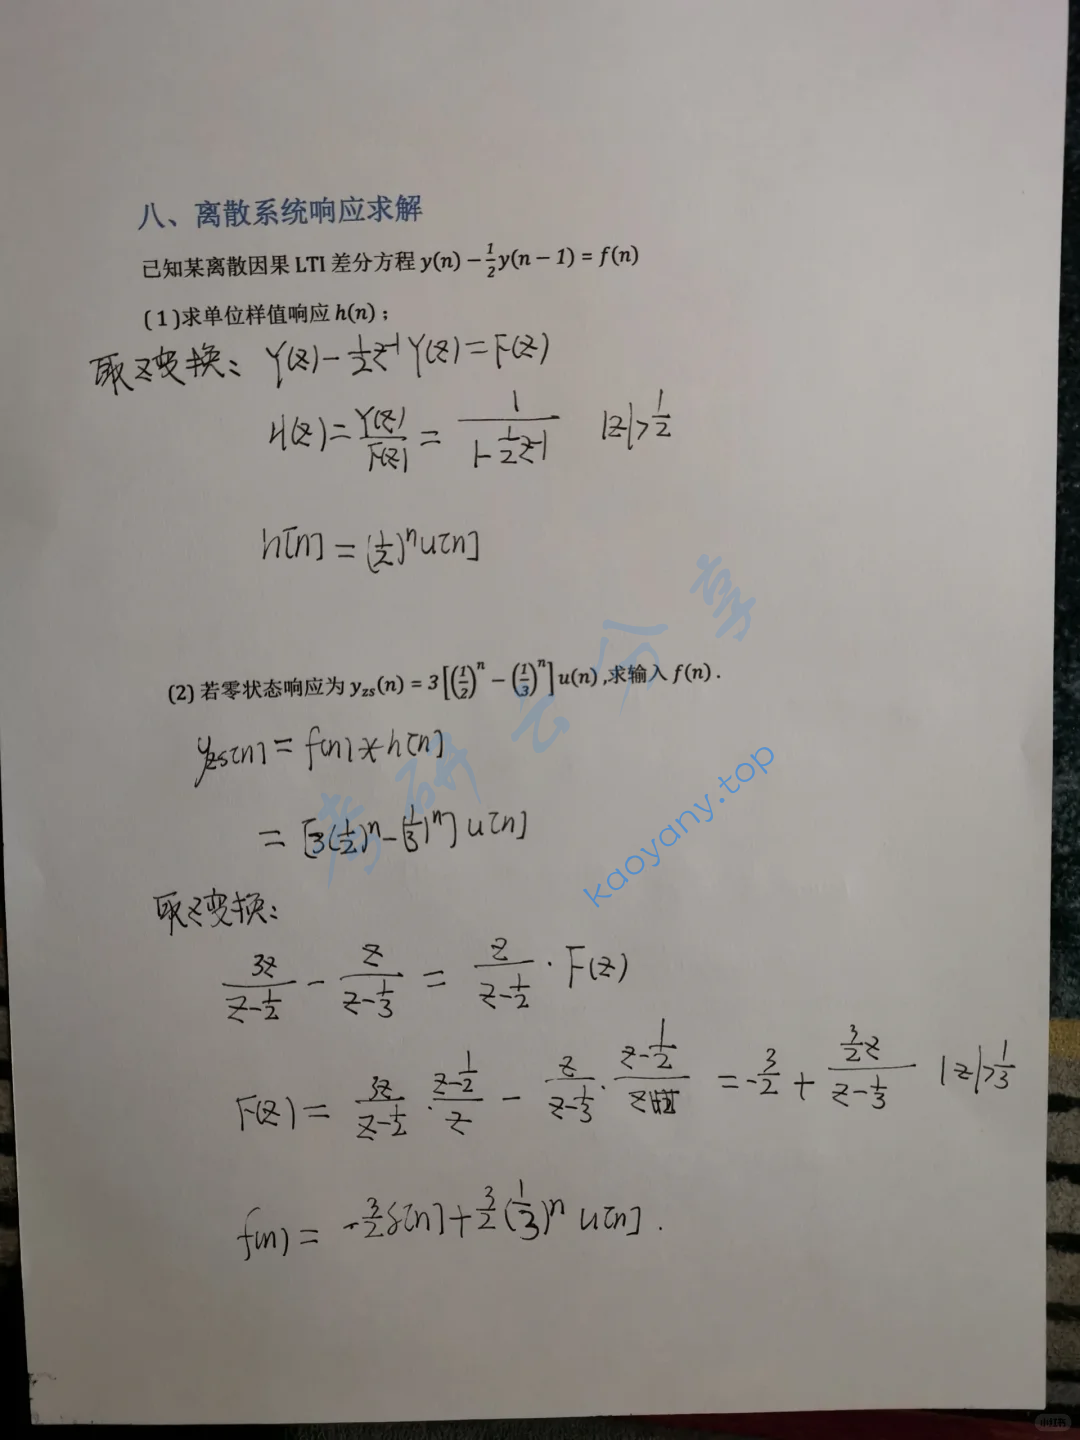 八、离散系统响应求解
已知某离散因果 LTI 差分方程 y(n) − 1/2 y(n − 1) = f(n)
(1)求单位样值响应 h(n)；
取Z变换: Y(z) − 1/2 z⁻¹ Y(z) = F(z)
H(z) = Y(z)/F(z) = 1/(1 − 1/2 z⁻¹) |z| > 1/2
h[n] = (1/2)ⁿ u[n]
(2) 若零状态响应为 y_zs(n) = 3[(1/2)ⁿ − (1/3)ⁿ] u(n) ,求输入 f(n) .
y_zs[n] = f[n] * h[n]
= [3(1/2)ⁿ − (1/3)ⁿ] u[n]
取Z变换:
3z/(z − 1/2) − z/(z − 1/3) = z/(z − 1/2) · F(z)
F(z) = 3z/(z − 1/2) · (z − 1/2)/z − z/(z − 1/3) · (z − 1/2)/z = −3/2 + (3/2 z)/(z − 1/3) |z| > 1/3
f(n) = −3/2 δ[n] + 3/2 (1/3)ⁿ u[n] .
考研云分享
kaoyany.top
小红书